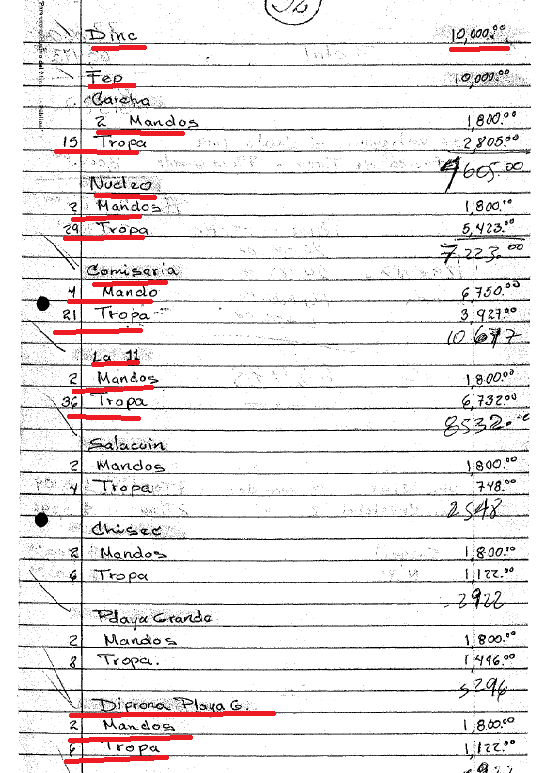 32
Dinc 10,000.00
Fep 10,000.00
Carcha
2 Mandos 1,800.00
15 Tropa 2,805.00
4605.00
Nucleo
2 Mandos 1,800.00
29 Tropa 5,423.00
7,223.00
Comiseria
4 Mando 6750.00
21 Tropa 3,927.00
10677
La 11
2 Mandos 1,800.00
36 Tropa 6,732.00
8532.00
Salacuin
2 Mandos 1,800.00
4 Tropa 748.00
2548
Chisec
2 Mandos 1,800.00
6 Tropa 1,122.00
2922
Playa Grande
2 Mandos 1,800.00
8 Tropa. 1,496.00
3296
Diprona Playa G.
2 Mandos 1,800.00
6 Tropa 1,122.00